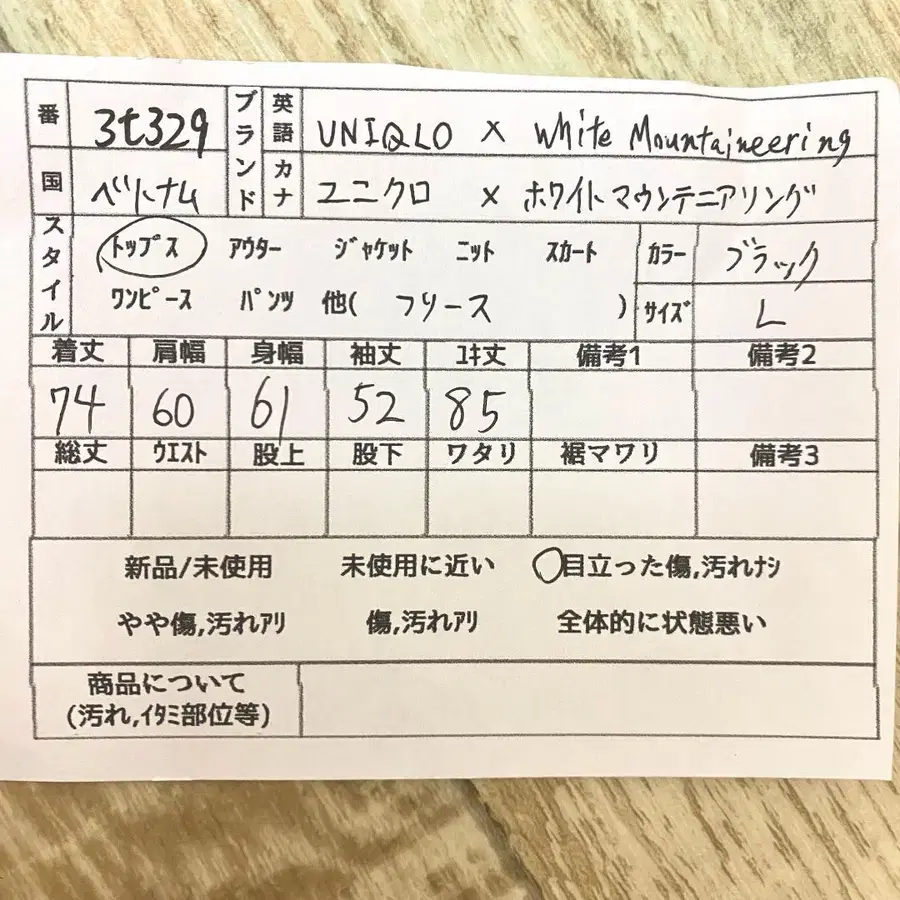 番 3t329 ブランド 英語 UNIQLO × White Mountaineering
国 ベトナム カナ ユニクロ × ホワイトマウンテニアリング
スタイル トップス アウター ジャケット ニット スカート カラー ブラック
ワンピース パンツ 他( フリース ) サイズ L
着丈 肩幅 身幅 袖丈 ユキ丈 備考1 備考2
74 60 61 52 85
総丈 ウエスト 股上 股下 ワタリ 裾マワリ 備考3
新品/未使用 未使用に近い 目立った傷,汚れナシ
やや傷,汚れアリ 傷,汚れアリ 全体的に状態悪い
商品について
(汚れ,イタミ部位等)